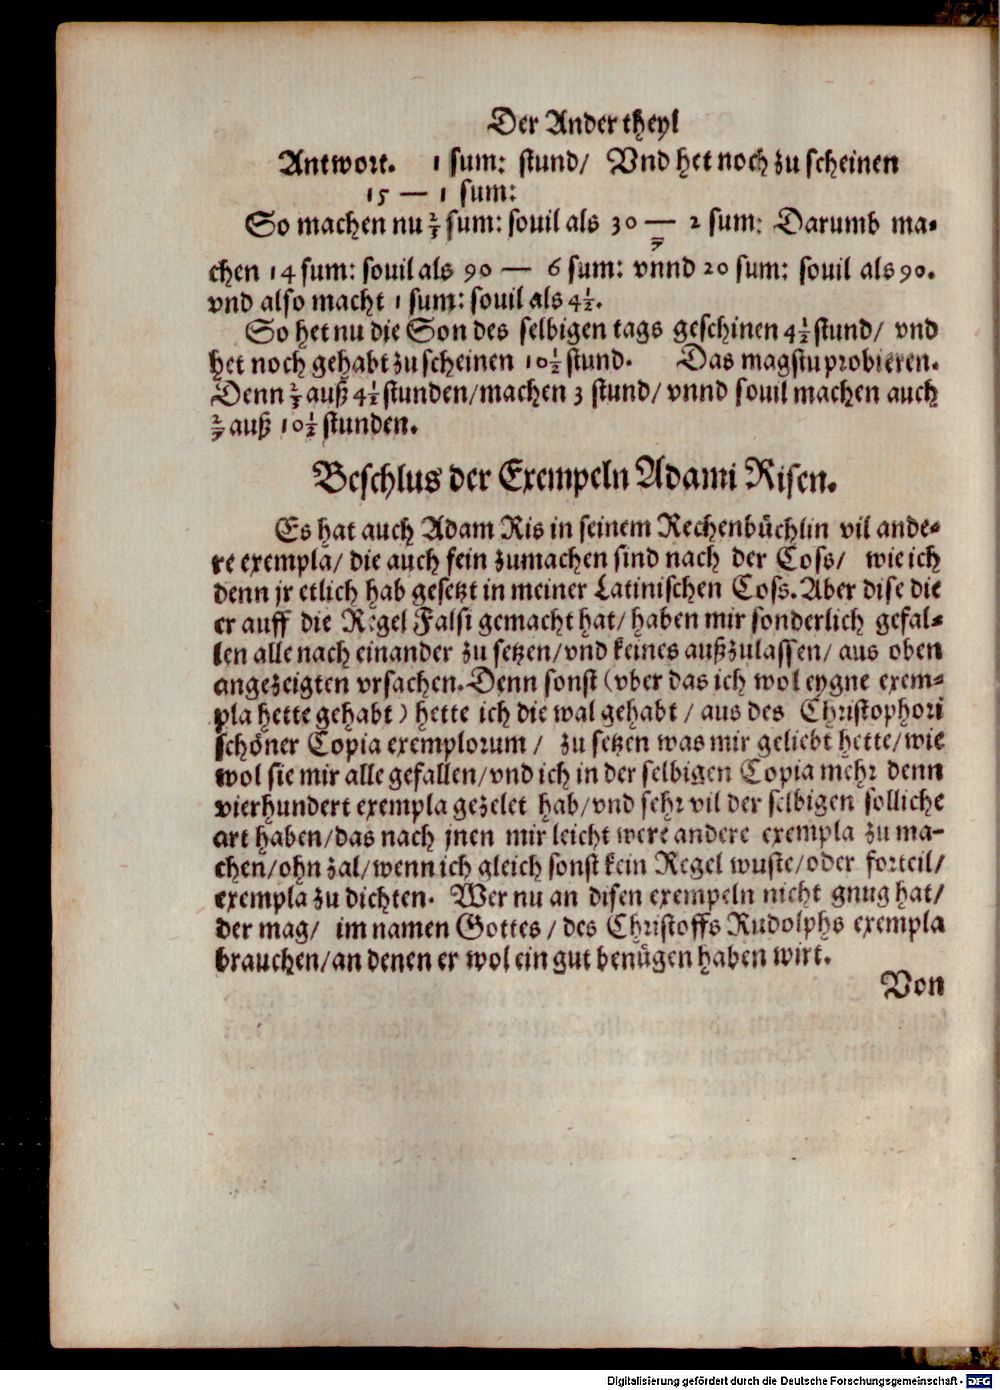 Der Ander theyl
Antwort. 1 sum: stund/ Vnd het noch zu scheinen
15 — 1 sum:
So machen nu ⅔ sum: souil als 30 — 2 sum: Darumb ma-
7
chen 14 sum: souil als 90 — 6 sum: vnnd 20 sum: souil als 90.
vnd also macht 1 sum: souil als 4½.
So het nu die Son des selbigen tags geschinen 4½ stund/ vnd
het noch gehabt zu scheinen 10½ stund. Das magstu probieren.
Denn ⅔ auß 4½ stunden/machen 3 stund/ vnnd souil machen auch
2/7 auß 10½ stunden.
Beschlus der Exempeln Adami Risen.
Es hat auch Adam Ris in seinem Rechenbüchlin vil ande-
re exempla/ die auch fein zumachen sind nach der Coss/ wie ich
denn jr etlich hab gesetzt in meiner Latinischen Coss. Aber dise die
er auff die Regel Falsi gemacht hat/ haben mir sonderlich gefal-
len alle nach einander zu setzen/vnd keines außzulassen/ aus oben
angezeigten vrsachen. Denn sonst (vber das ich wol eygne exem-
pla hette gehabt) hette ich die wal gehabt/ aus des Christophori
schöner Copia exemplorum/ zu setzen was mir geliebt hette/wie
wol sie mir alle gefallen/vnd ich in der selbigen Copia mehr denn
vierhundert exempla gezelet hab/vnd sehr vil der selbigen solliche
art haben/das nach jnen mir leicht were andere exempla zu ma-
chen/ohn zal/wenn ich gleich sonst kein Regel wuste/oder forteil/
exempla zu dichten. Wer nu an disen exempeln nicht gnug hat/
der mag/ im namen Gottes/ des Christoffs Rudolphs exempla
brauchen/an denen er wol ein gut benügen haben wirt.
Von
Digitalisierung gefördert durch die Deutsche Forschungsgemeinschaft - DFG